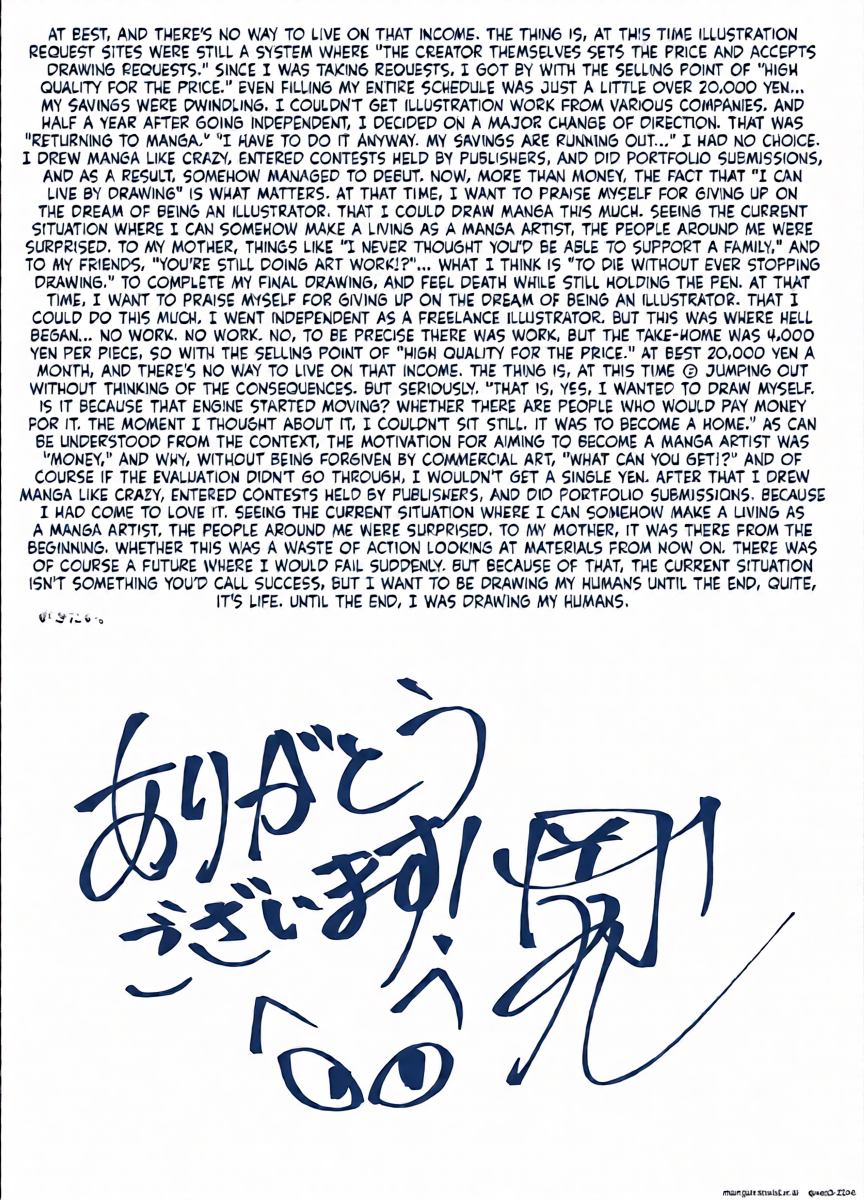 AT BEST, AND THERE'S NO WAY TO LIVE ON THAT INCOME. THE THING IS, AT THIS TIME ILLUSTRATION
REQUEST SITES WERE STILL A SYSTEM WHERE "THE CREATOR THEMSELVES SETS THE PRICE AND ACCEPTS
DRAWING REQUESTS." SINCE I WAS TAKING REQUESTS, I GOT BY WITH THE SELLING POINT OF "HIGH
QUALITY FOR THE PRICE." EVEN FILLING MY ENTIRE SCHEDULE WAS JUST A LITTLE OVER 20,000 YEN...
MY SAVINGS WERE DWINDLING. I COULDN'T GET ILLUSTRATION WORK FROM VARIOUS COMPANIES. AND
HALF A YEAR AFTER GOING INDEPENDENT, I DECIDED ON A MAJOR CHANGE OF DIRECTION. THAT WAS
"RETURNING TO MANGA." "I HAVE TO DO IT ANYWAY. MY SAVINGS ARE RUNNING OUT..." I HAD NO CHOICE.
I DREW MANGA LIKE CRAZY, ENTERED CONTESTS HELD BY PUBLISHERS, AND DID PORTFOLIO SUBMISSIONS,
AND AS A RESULT, SOMEHOW MANAGED TO DEBUT. NOW, MORE THAN MONEY, THE FACT THAT "I CAN
LIVE BY DRAWING" IS WHAT MATTERS. AT THAT TIME, I WANT TO PRAISE MYSELF FOR GIVING UP ON
THE DREAM OF BEING AN ILLUSTRATOR. THAT I COULD DRAW MANGA THIS MUCH. SEEING THE CURRENT
SITUATION WHERE I CAN SOMEHOW MAKE A LIVING AS A MANGA ARTIST, THE PEOPLE AROUND ME WERE
SURPRISED. TO MY MOTHER, THINGS LIKE "I NEVER THOUGHT YOU'D BE ABLE TO SUPPORT A FAMILY," AND
TO MY FRIENDS, "YOU'RE STILL DOING ART WORK!?"... WHAT I THINK IS "TO DIE WITHOUT EVER STOPPING
DRAWING." TO COMPLETE MY FINAL DRAWING, AND FEEL DEATH WHILE STILL HOLDING THE PEN. AT THAT
TIME, I WANT TO PRAISE MYSELF FOR GIVING UP ON THE DREAM OF BEING AN ILLUSTRATOR. THAT I
COULD DO THIS MUCH, I WENT INDEPENDENT AS A FREELANCE ILLUSTRATOR. BUT THIS WAS WHERE HELL
BEGAN... NO WORK. NO WORK. NO, TO BE PRECISE THERE WAS WORK, BUT THE TAKE-HOME WAS 4,000
YEN PER PIECE, SO WITH THE SELLING POINT OF "HIGH QUALITY FOR THE PRICE." AT BEST 20,000 YEN A
MONTH, AND THERE'S NO WAY TO LIVE ON THAT INCOME. THE THING IS, AT THIS TIME JUMPING OUT
WITHOUT THINKING OF THE CONSEQUENCES. BUT SERIOUSLY. "THAT IS, YES, I WANTED TO DRAW MYSELF.
IS IT BECAUSE THAT ENGINE STARTED MOVING? WHETHER THERE ARE PEOPLE WHO WOULD PAY MONEY
FOR IT. THE MOMENT I THOUGHT ABOUT IT, I COULDN'T SIT STILL. IT WAS TO BECOME A HOME." AS CAN
BE UNDERSTOOD FROM THE CONTEXT, THE MOTIVATION FOR AIMING TO BECOME A MANGA ARTIST WAS
"MONEY," AND WHY, WITHOUT BEING FORGIVEN BY COMMERCIAL ART, "WHAT CAN YOU GET!?" AND OF
COURSE IF THE EVALUATION DIDN'T GO THROUGH, I WOULDN'T GET A SINGLE YEN. AFTER THAT I DREW
MANGA LIKE CRAZY, ENTERED CONTESTS HELD BY PUBLISHERS, AND DID PORTFOLIO SUBMISSIONS. BECAUSE
I HAD COME TO LOVE IT. SEEING THE CURRENT SITUATION WHERE I CAN SOMEHOW MAKE A LIVING AS
A MANGA ARTIST, THE PEOPLE AROUND ME WERE SURPRISED. TO MY MOTHER, IT WAS THERE FROM THE
BEGINNING. WHETHER THIS WAS A WASTE OF ACTION LOOKING AT MATERIALS FROM NOW ON. THERE WAS
OF COURSE A FUTURE WHERE I WOULD FAIL SUDDENLY. BUT BECAUSE OF THAT, THE CURRENT SITUATION
ISN'T SOMETHING YOU'D CALL SUCCESS, BUT I WANT TO BE DRAWING MY HUMANS UNTIL THE END, QUITE,
IT'S LIFE. UNTIL THE END, I WAS DRAWING MY HUMANS.
ありがとう
うございます!